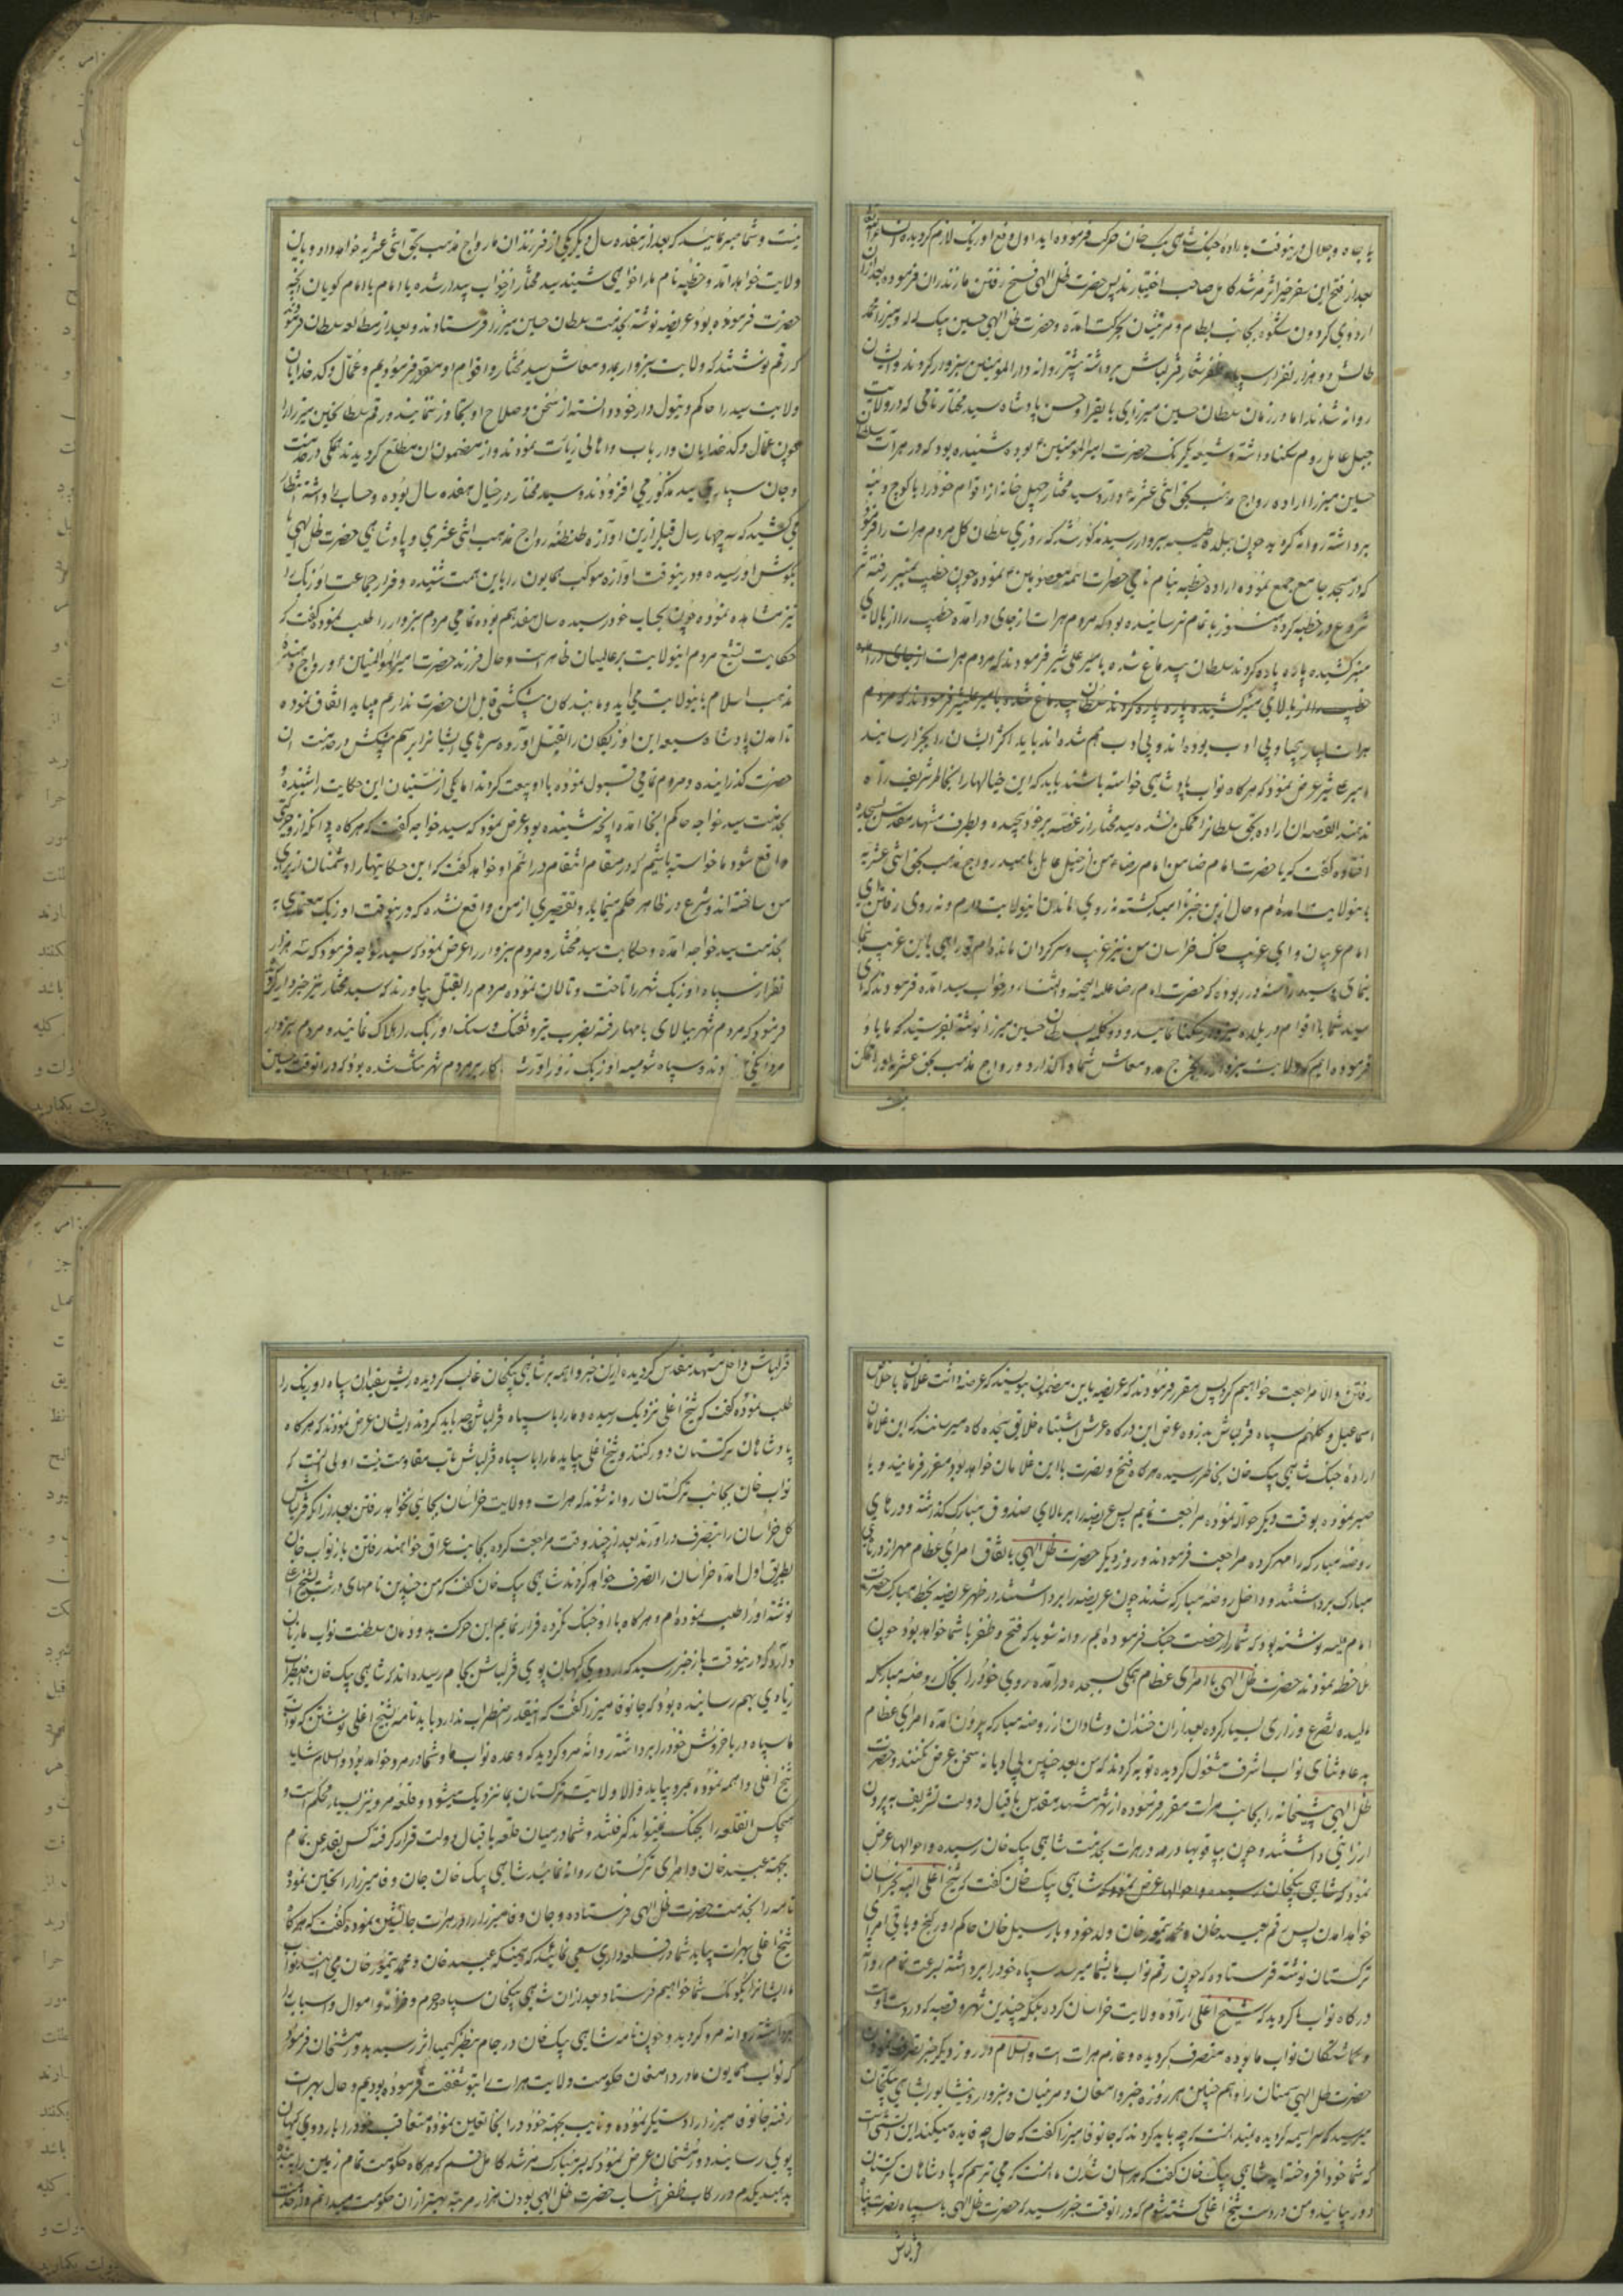 با جاه و جلال درینوقت به اراده جنگ شاهی بیک خان حرکت فرموده اید اول دفع اوزبک لازم گردیده
بعد از فتح این سفر خیر اثر مرشد کامل صاحب اختیارند پس حضرت ظل الهی فسخ رفتن مازندران فرموده بعد ازان
اردوی گردون شکوه بجانب بسطام و مزینان بحرکت آمده و حضرت ظل الهی حسین بیک لله و میرزا محمد
طالش و دو هزار نفر از سپاه ظفر شعار قزلباش برداشته پیشتر روانه دار المؤمنین سبزوار کردند و ایشان
روانه شدند اما در زمان سلطان حسین میرزای بایقرا و حسن پادشاه سید مختار نامی که در ولایت
جبل عامل روم سکنا داشته و شیعه یکرنک حضرت امیر المؤمنین بوده شنیده بود که در هرات سلطان
حسین میرزا اراده رواج مذهب بحق اثنی عشریه دارد سید مختار چهل خانه از اقوام خود را با کوچ و بنه
برداشته روانه گردید چون ببلده طیبه سبزوار رسید مذکور شد که روزی سلطان کل مردم هرات را فرمود
که در مسجد جامع جمع نموده اراده خطبه بنام نامی حضرات ائمه معصومین نموده چون خطیب بمنبر رفته
شروع در خطبه کرده هنوز باتمام نرسانیده بود که مردم هرات از جای درآمده خطیب را از بالای
منبر کشیده پاره پاره کردند سلطان بیدماغ شده با میر علی شیر فرمودند که مردم هرات از جای درآمده
خطیب را از بالای منبر کشیده پاره پاره کردند سلطان بیدماغ شده با میر علیشیر فرمودند که مردم
هرات بسیار بیحیا و بی ادب بوده اند و بی ادب هم شده اند باید اکثر ایشان را بجزا رسانید
امیر علیشیر عرض نمود که هرکاه نواب پادشاهی خواسته باشند باید که این خیالها را بخاطر شریف راه
ندهند القصه ان اراده بحق سلطانرا ممکن نشده سید مختار از غصه بر خود پیچیده و بطرف مشهد مقدس بسجده
افتاده گفت که یا حضرت امام ضامن امام رضا من از جبل عامل بامید رواج مذهب بحق اثنی عشریه
باینولایت آمده ام و حال ازین خبر ناامید گشته نه روی ماندن اینولایت دارم و نه روی رفتن ای
امام غریبان و ای غریب خاک خراسان من نیز غریب و سرگردان مانده ام تو راهی باین غریب بنما
سید شما با اقوام در بلده سبزوار سکنا نمائید و دو کلمه بسلطان حسین میرزا نوشته بفرستید که ما با او
فرموده ایم که ولایت سبزوار را بخرج مدد معاش شما واگذارد و رواج مذهب بحق عشریه او را ممکن
نیست
نیست و شما صبر نمائید که بعد از هفده سال دیگر یکی از فرزندان ما رواج مذهب بحق اثنی عشریه خواهد داد و باین
ولایت خواهد آمد و خطبه بنام ما را خواهی شنید سید مختار از خواب بیدار شده یا امام یا امام گویان آنچه
حضرت فرموده بود عریضه نوشته بخدمت سلطان حسین میرزا فرستادند و بعد از مطالعه سلطان فرمود
که رقم نوشتند که ولایت سبزوار بمدد معاش سید مختار و اقوام او مقرر فرمودیم و عمال و کدخدایان
ولایت سید را حاکم و تیول دار خود دانسته از سخن و صلاح او تجاوز ننمایند و رقم سلطان حسین میرزا را
چون عمال و کدخدایان و ارباب و اهالی زیارت نمودند و از مضمون آن مطلع گردیدند همگی در خدمت
و جان سپاری سید مذکور می افزودند و سید مختار در خیال هفده سال بوده و حساب را داشته انتظار
می کشید که سه چهار سال قبل ازین آوازه طنطنه رواج مذهب اثنی عشری و پادشاهی حضرت ظل الهی
بکوش او رسیده و درینوقت آوازه موکب همایون را باین سمت شنیده و فرار جماعت اوزبک را
نیز مشاهده نموده چون بحساب خود رسیده سال هفدهم بوده تمامی مردم سبزوار را طلب نموده گفت که
حکایت تشیع مردم اینولایت بر عالمیان ظاهر است و حال فرزند حضرت امیر المؤمنین و رواج دهنده
مذهب اسلام باینولایت می آید و ما بندگان پیشکشی قابل ان حضرت نداریم میباید اتفاق نموده
تا آمدن پادشاه شیعه این اوزبکان را بقتل آورده سرهای ایشانرا برسم پیشکش در خدمت آن
حضرت گذرانیده و مردم تمامی قبول نموده با او بیعت کردند اما یکی از سنیان این حکایت را شنیده
بخدمت سید خواجه حاکم آنجا آمده آنچه شنیده بود عرض نمود که سید خواجه گفت که هرکاه
واقع شود ما خواسته باشیم که در مقام انتقام درائیم او خواهد گفت که این حکایتها را دشمنان از برای
من ساخته اند و شرع در ظاهر حکم مینماید و تقصیری از من واقع نشده که درینوقت اوزبک معتمدی
بخدمت سید خواجه آمده و حکایت سید مختار و مردم سبزوار را عرض نمود که سید خواجه فرمود که سه هزار
نفر از سپاه اوزبک شهر را تاخت و تالان نموده مردم را بقتل بیاورند که سید مختار نیز خبردار گردید
فرمود که مردم شهر ببالای بامها رفته بضرب تیر و تفنگ و سنگ اوزبک را هلاک نمایند و مردم سبزوار
رفتن و الا مراجعت خواهیم کرد پس مقرر فرمودند که عریضه باین مضمون بنویسند که عرضه داشت غلامان با اخلاص
اسماعیل و کلهم سپاه قزلباش بذروه عرض این درکاه عرش اشتباه خلایق سجده کاه میرسانند که این غلامان
اراده جنگ شاهی بیک خان بخاطر رسیده هرکاه فتح و نصرت با این غلامان خواهد بود مقرر فرمایند و یا
صبر نموده بوقت دیگر حواله نموده مراجعت نمایم پس عریضه را بر بالای صندوق مبارک گذاشته و درهای
روضه مبارکه را مهر کرده مراجعت فرمودند و روز دیگر حضرت ظل الهی باتفاق امرای عظام مهر از درهای
مبارک برداشتند و داخل روضه مبارکه شدند چون عریضه را برداشتند در ظهر عریضه بخط مبارک حضرت
امام علیه نوشته بود که شما را رخصت جنگ فرموده ایم روانه شوید که فتح و ظفر با شما خواهد بود چون
ملاحظه نمودند حضرت ظل الهی با امرای عظام همگی بسجده درآمده روی خود را بخاک روضه مبارکه
مالیده تضرع و زاری بسیار کرده بعد ازان خندان و شادان از روضه مبارکه بیرون آمده امرای عظام
بدعا و ثنای نواب اشرف مشغول گردیده توبه کردند که من بعد چنین بی ادبانه سخن عرض نکنند و حضرت
ظل الهی پیشخانه را بجانب هرات مقرر فرموده از شهر مشهد مقدس باقبال دولت تشریف به بیرون
ارزانی داشتند و چون بیاقو بهادر در هرات بخدمت شاهی بیک خان رسیده و احوالها عرض
نمود که شاهی بیکخان رسیده و احوالها عرض نمود که شاهی بیک خان گفت که شیخ اغلی البته بخراسان
خواهد آمدن پس رقم عبید خان و محمد تیمور خان ولد خود و بارسیل خان حاکم اورکنج و باقی امرای
ترکستان نوشته فرستاده که چون رقم نواب ما بشما میرسد سپاه خود را برداشته بسرعت تمام روانه
درکاه نواب ما گردید که شیخ اغلی اراده ولایت خراسان کرده بلکه چندین شهر و قصبه که در دست
و گماشتگان نواب ما بوده متصرف گردیده و عازم هرات است والسلام و در روز دیگر خبر تصرف نمودن
حضرت ظل الهی سمنان را و همچنین هر روزه خبر دامغان و مزینان و سبزوار و نیشابور بشاهی بیکخان
میرسید که سراسیمه گردیده نمیدانست که چه باید کردند که جانوفا میرزا گفت که حال چه فایده میکند
که شما خود افروخته اید شاهی بیک خان گفت که هراسان شدن ما انست که می ترسم که پادشاهان ترکستان
دور بیایند و من در دست شیخ اغلی کشته شوم که درانوقت خبر رسید که حضرت ظل الهی با سپاه نصرت پناه
قزلباش
قزلباش داخل مشهد مقدس گردیده ازین خبر واهمه بر شاهی بیکخان غالب گردیده ریش سفیدان سپاه اوزبک را
طلب نموده گفت که شیخ اغلی نزدیک رسیده و ما را با سپاه قزلباش چه باید کردند ایشان عرض نمودند که هرکاه
پادشاهان ترکستان دور کنند و شیخ اغلی بیاید ما را با سپاه قزلباش تاب مقاومت نیست اولی انست که
نواب خان بجانب ترکستان روانه شوند که هرات و ولایت خراسان بجائی نخواهد رفتن بعد ازانکه قزلباش
کل خراسان را بتصرف درآورند بعد از چند وقت مراجعت کرده بجانب عراق خواهند رفتن باز نواب خان
بطریق اول آمده خراسان را تصرف خواهد کردند شاهی بیک خان گفت که من چندین نامهای درشت بشیخ اغلی
نوشته او را طلب نموده ام و هرکاه با او جنگ نکرده فرار نمایم این حرکت بد و دمان سلطنت نواب ما زیان
دارد که درینوقت باز خبر رسید که اردوی کیهان پوی قزلباش بجام رسیده اند که شاهی بیک خان اضطراب
زیادی بهم رسانیده بود که جانوفا میرزا گفت که اینقدر اضطراب ندارد باید نامه بشیخ اغلی نوشتن که نواب
ما سپاه دریا خروش خود را برداشته روانه مرو گردید که وعده نواب ما و شما در مرو خواهد بود والسلام شاید
شیخ اغلی واهمه نموده بمرو نیاید و الا ولایت ترکستان بما نزدیک میشود و قلعه مرو نیز بسیار محکم است و
هیچکس آنقلعه را بجنگ نمیتواند گرفتند و شما در میان قلعه باقبال دولت قرار گرفته کس بقدغن تمام
بجهة عبید خان و امرای ترکستان روانه نمائید شاهی بیک خان جان وفا میرزا را تحسین نموده
نامه را بخدمت حضرت ظل الهی فرستاده و جان وفا میرزا را در هرات جانشین نموده گفت که هرکاه
شیخ اغلی بهرات بیاید شما در قلعه داری سعی نمائید که همینکه عبید خان و محمد تیمور خان می آیند نواب
ما ایشانرا بکومک شما خواهیم فرستاد بعد ازان شاهی بیکخان سپاه و حرم و خزانه و اموال و اسباب را
برداشته روانه مرو گردید و چون نامه شاهی بیک خان در جام بنظر کیمیا اثر رسید بدورمشخان فرمود
که نواب همایون ما در دامغان حکومت ولایت هرات را بتو شفقت فرموده بودیم و حال بهرات
رفته جانوفا میرزا را دستگیر نموده و نایب بجهة خود در آنجا تعیین نموده متعاقب خود را باردوی کیهان
پوی رسانید دورمشخان عرض نمود که بسر مبارک مرشد کامل قسم که هرکاه حکومت تمام زمین را بنده
بدهند یکدم در رکاب ظفر انتساب حضرت ظل الهی بودن هزار مرتبه بهتر از ان حکومت میدانم